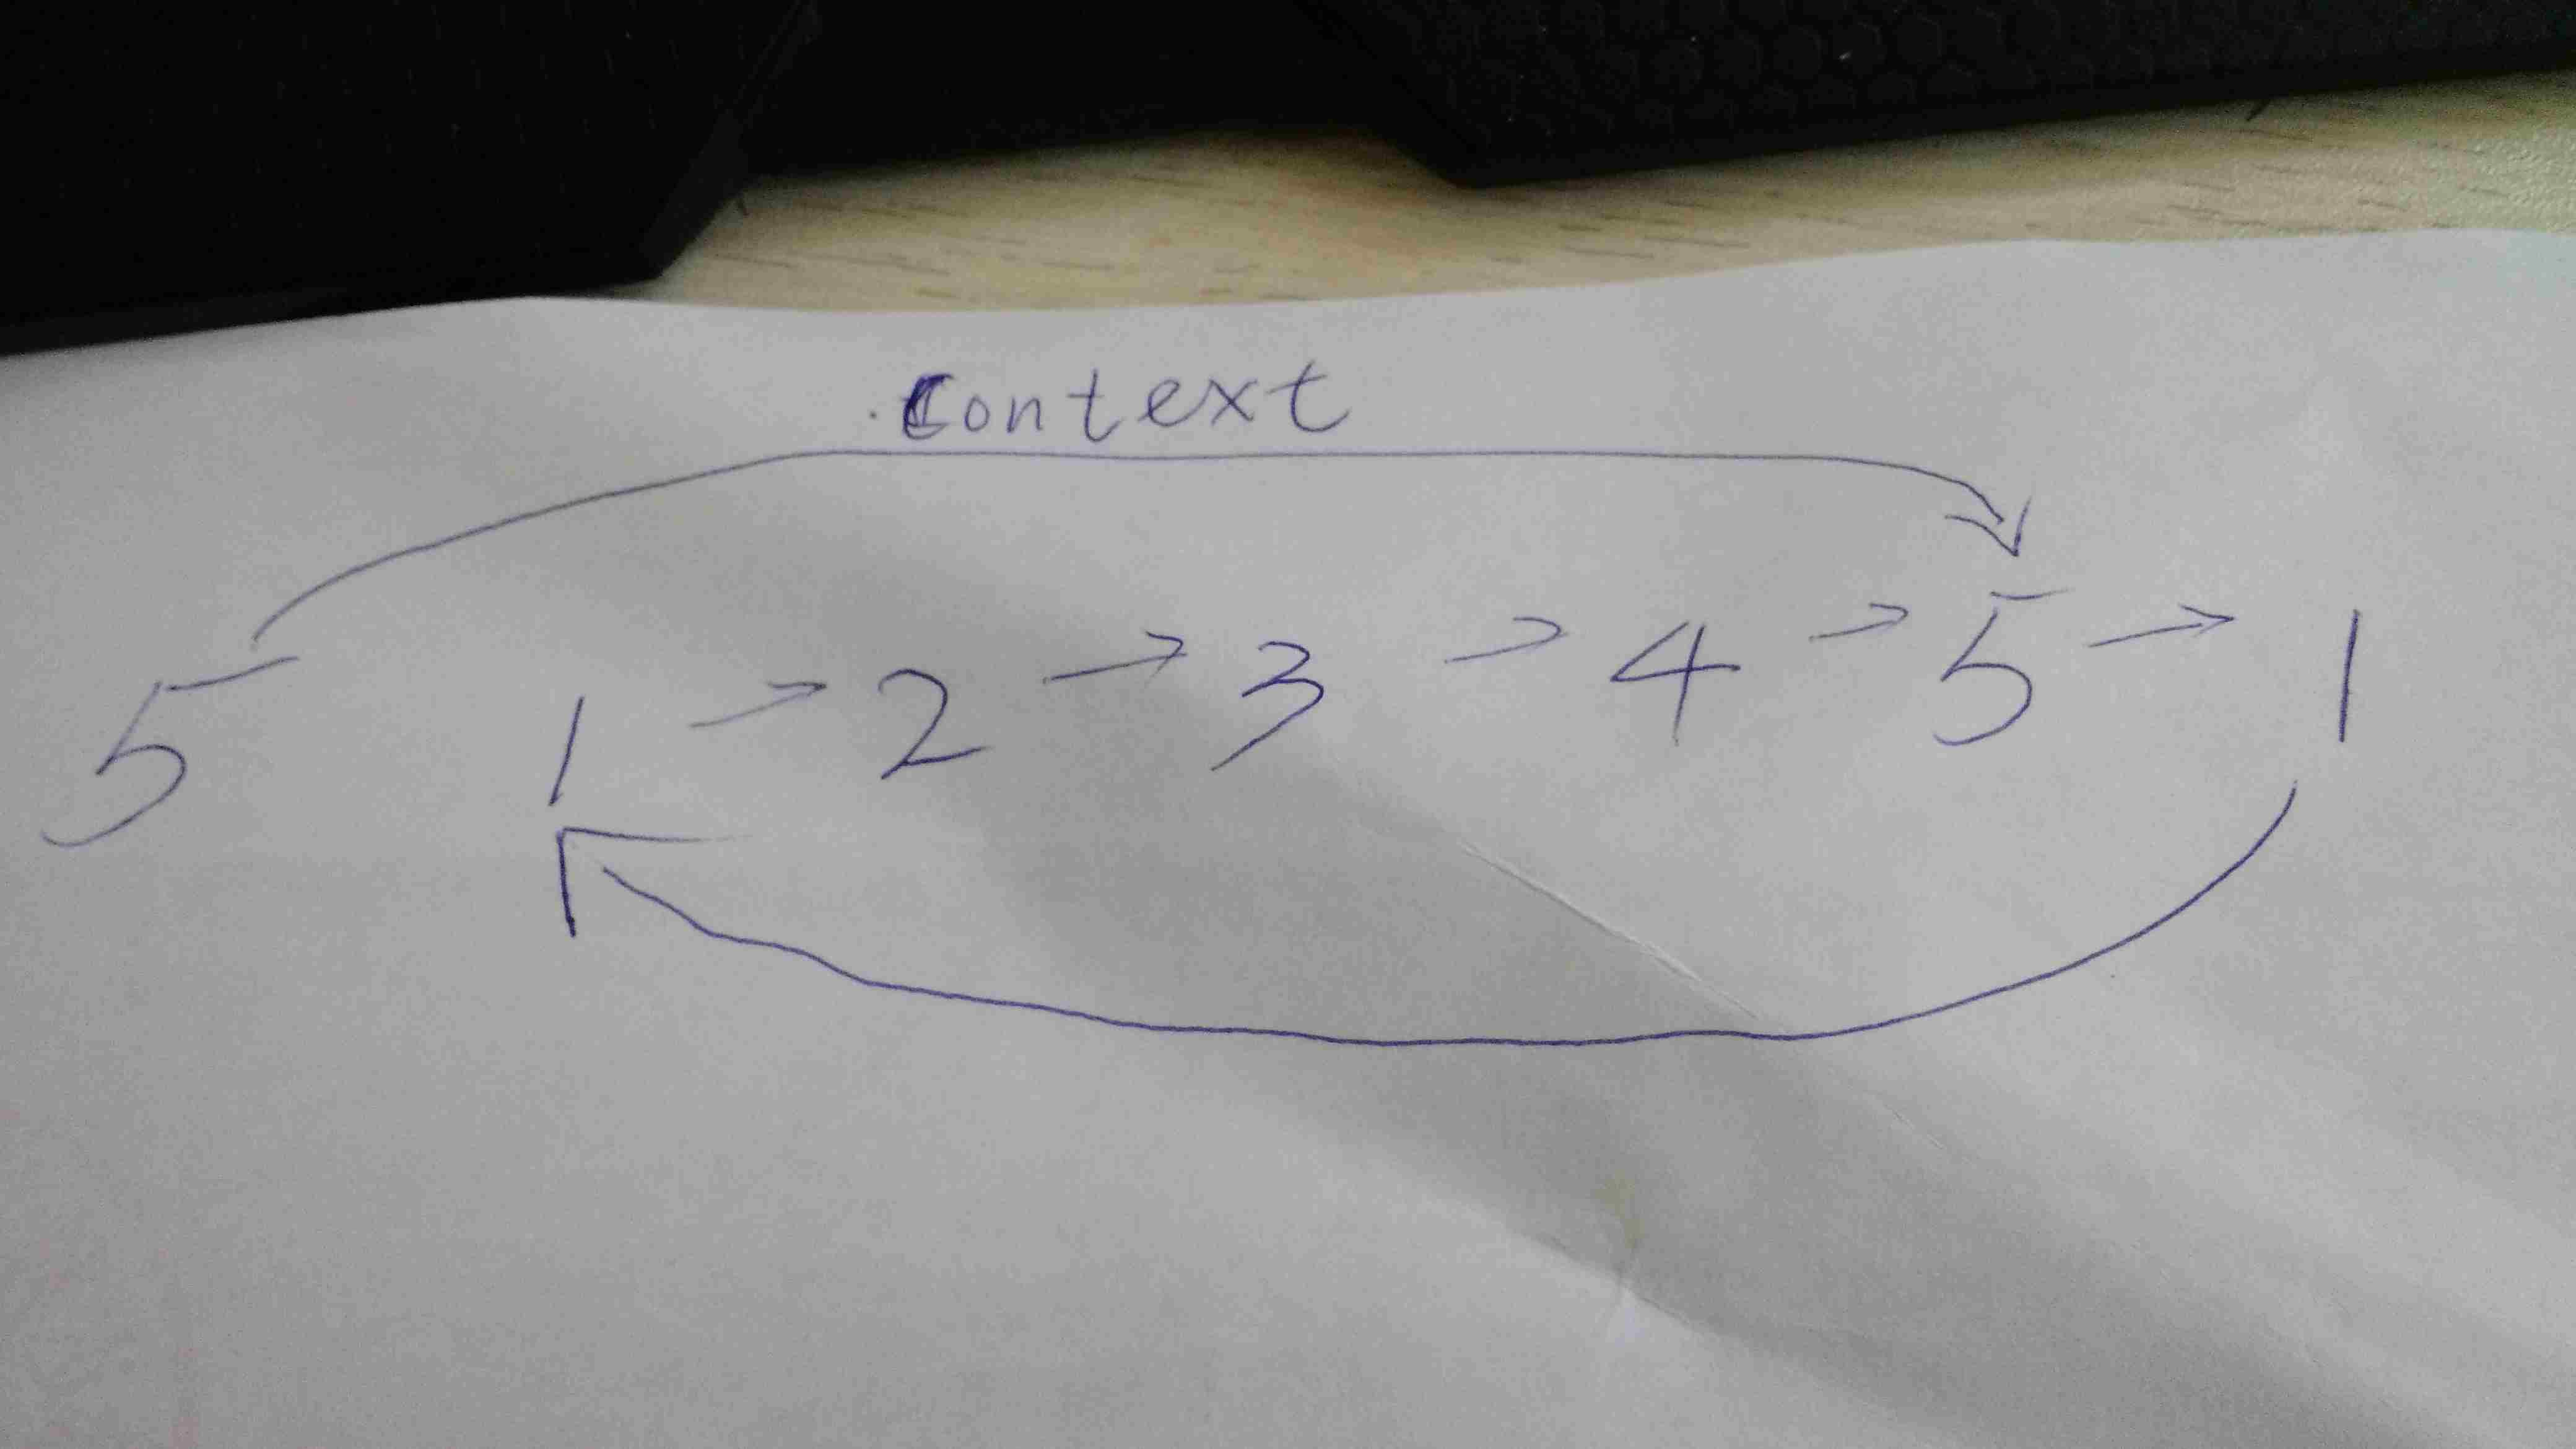 Context
5 1 → 2 → 3 → 4 → 5 → 1